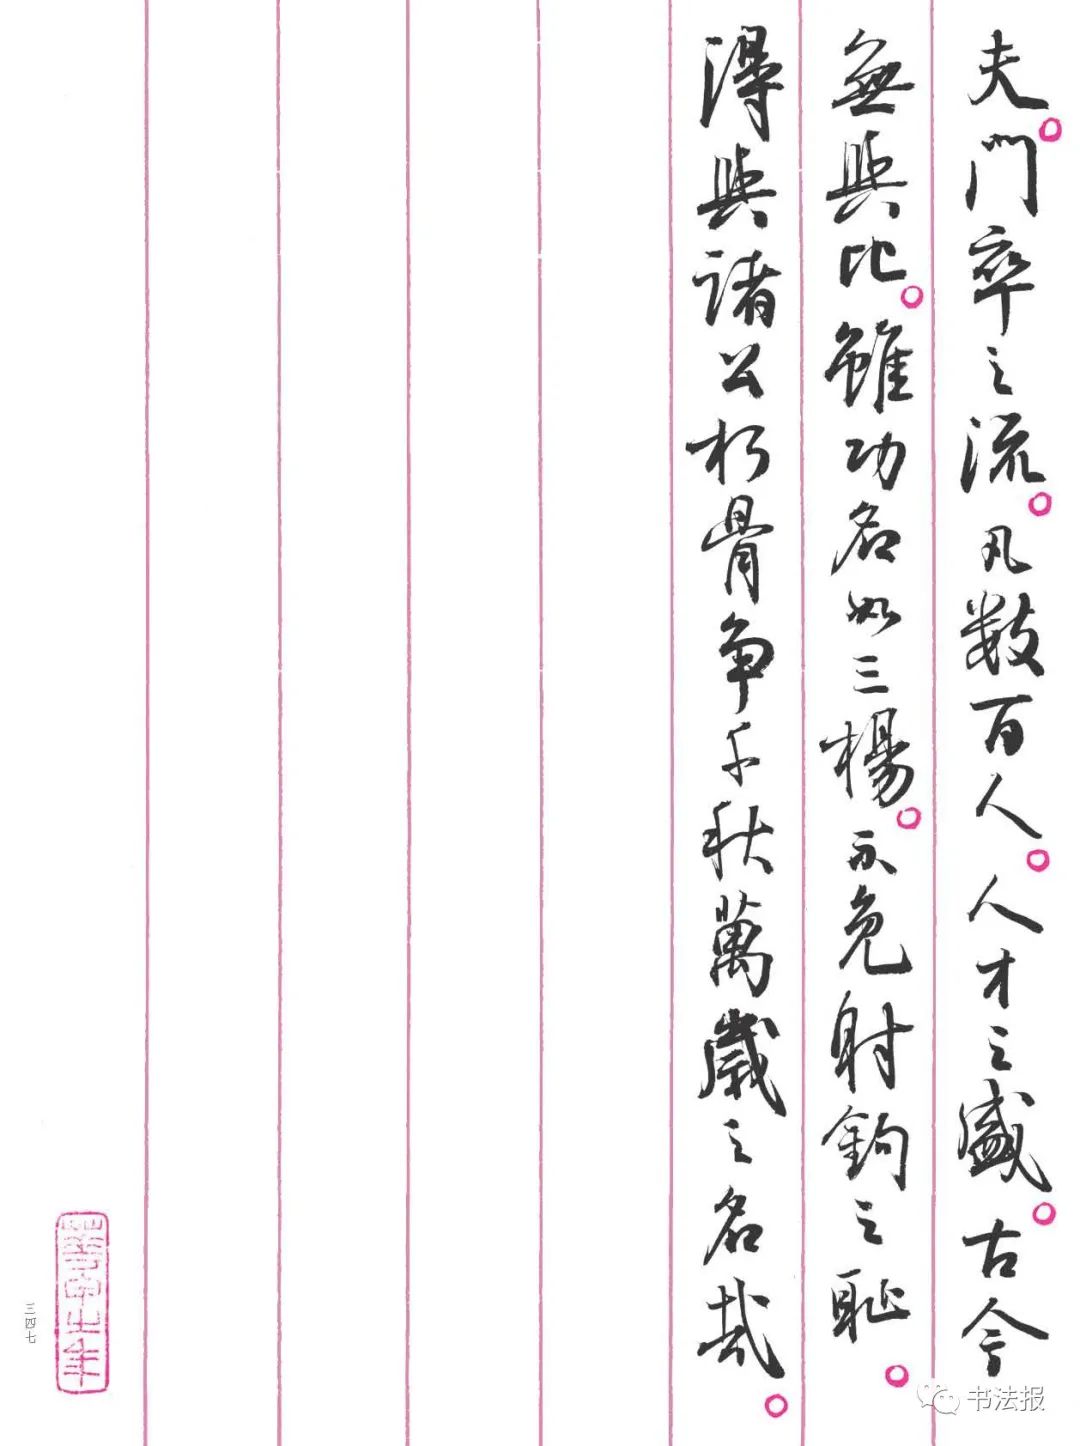 夫。門卒之流。凡數百人。人才之盛。古今
無與比。雖功名如三楊。不免射鉤之恥。
得與諸公朽骨爭千秋萬歲之名哉。
三四七
书法报